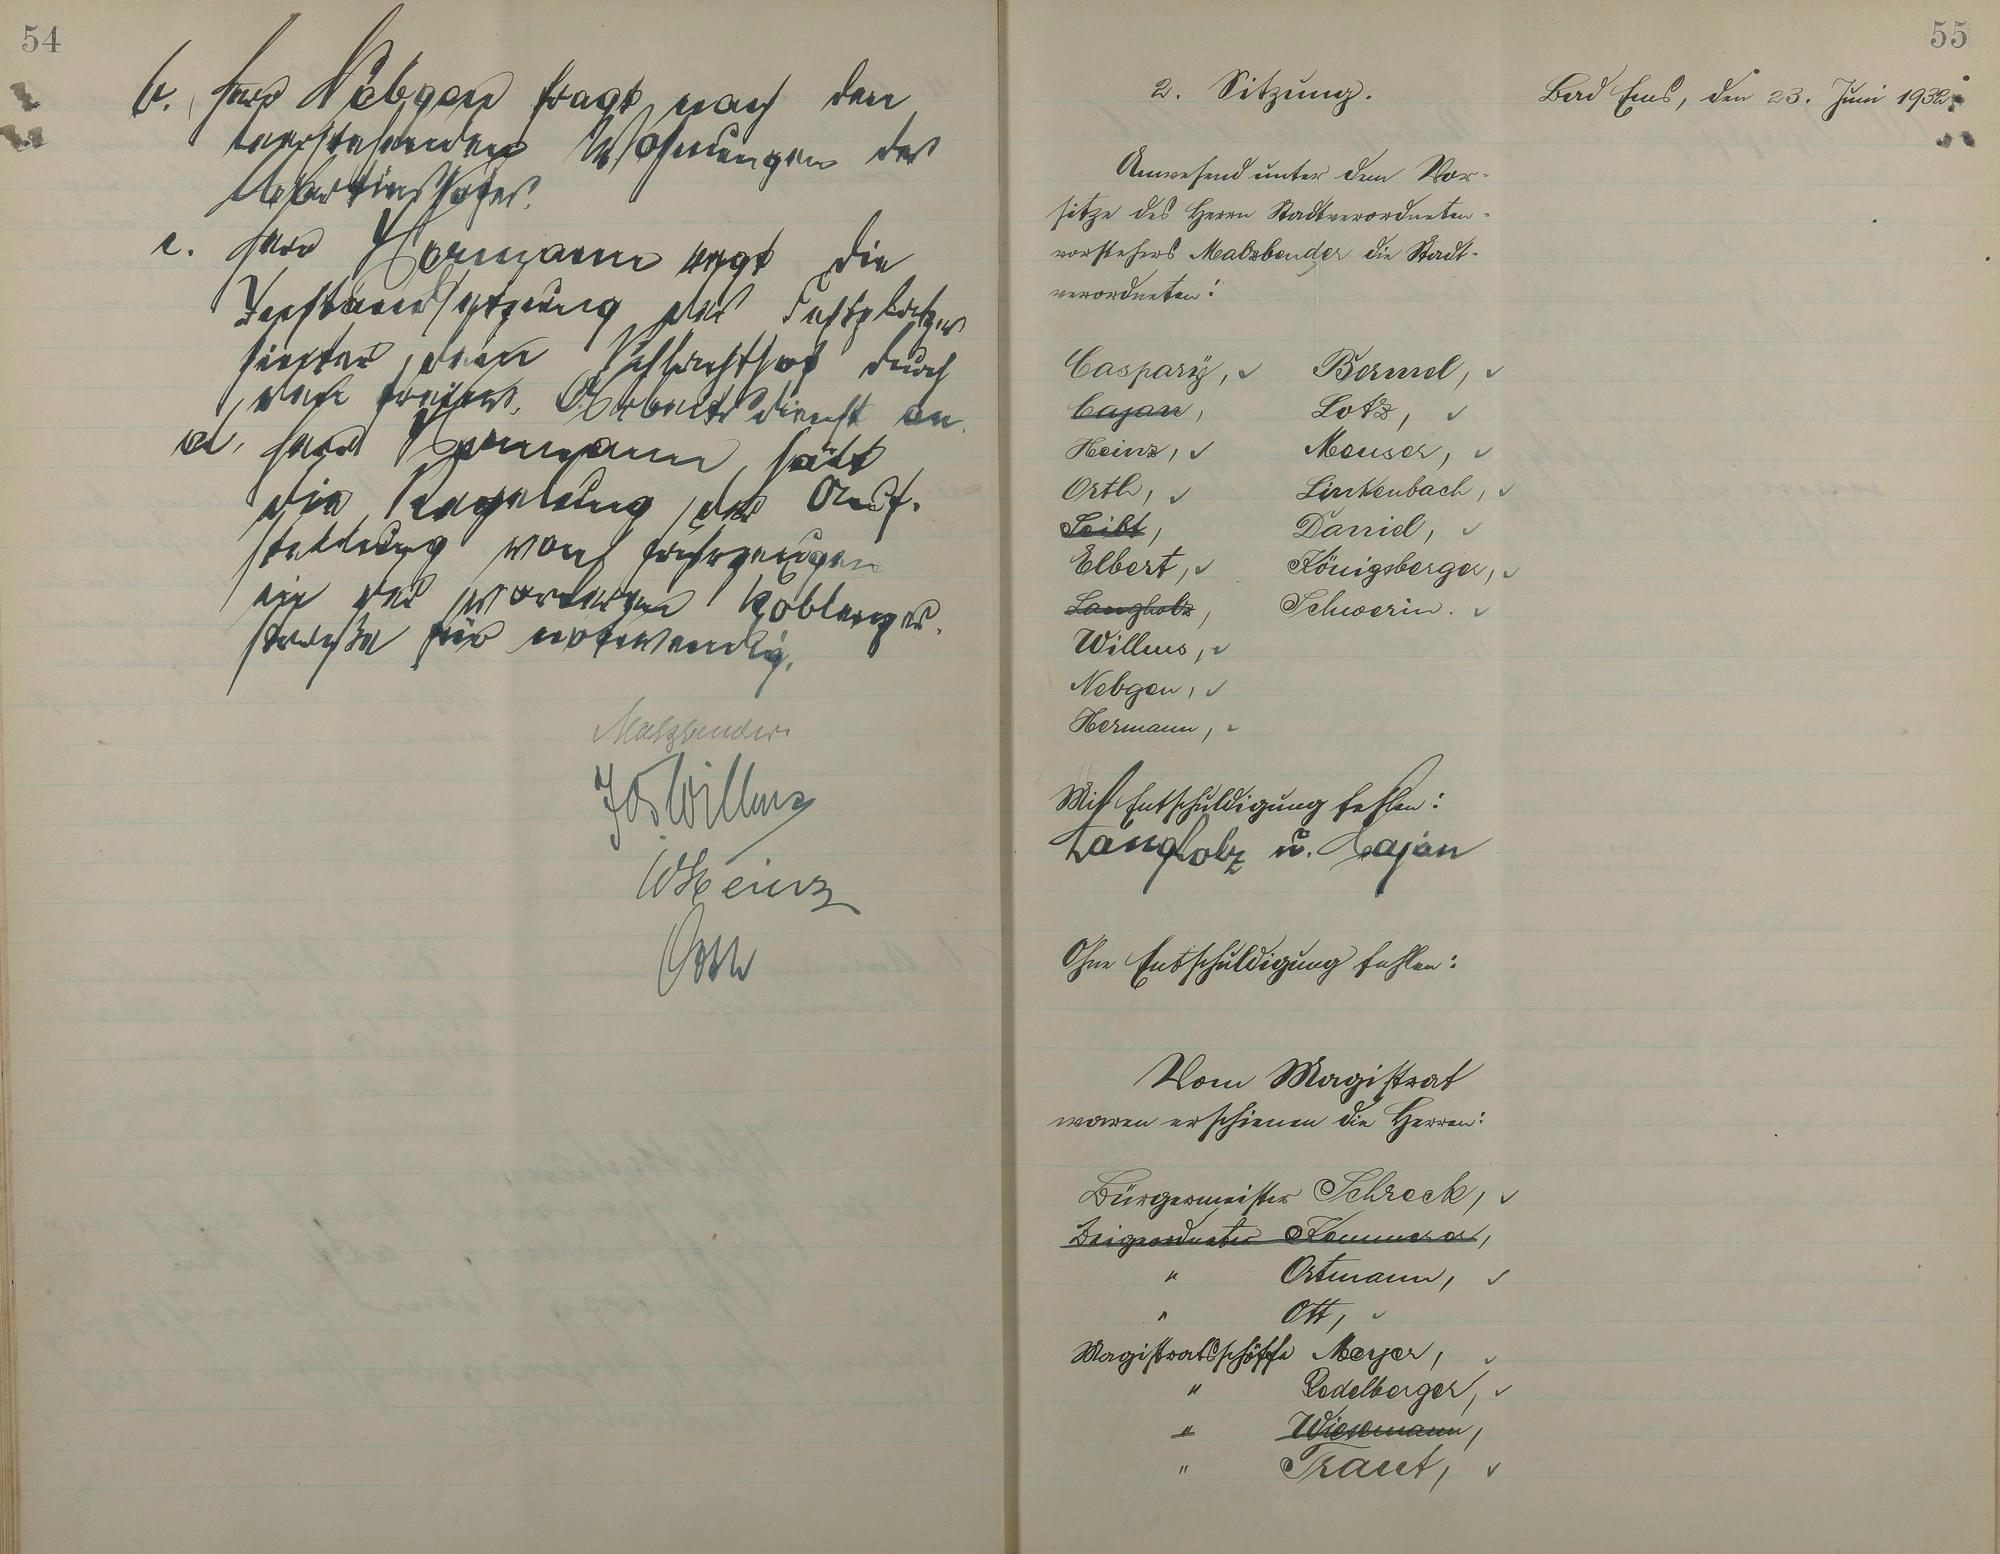 54
b. Herr Nebgen fragt nach den
leerstehenden Wohnungen des
Martinshofes.
c. Herr Hermann regt die
Instandsetzung des Festplatzes
hinter dem Schlachthof durch
den freiw. Arbeitsdienst an.
d. Herr Hermann hält
die Regelung der Auf-
stellung von Fuhrzeugen
in der vorderen Koblenzer-
straße für notwendig.
Malzbender
Jos Willms
W Heinz
Orth
55
2. Sitzung.
Bad Ems, den 23. Juni 1932.
Anwesend unter dem Vor-
sitze des Herrn Stadtverordneten-
vorstehers Malzbender die Stadt-
verordneten:
Caspary, ✓ Bermel, ✓
Cajan, Lotz, ✓
Heinz, ✓ Meuser, ✓
Orth, ✓ Linkenbach, ✓
Seibt, Daniel, ✓
Elbert, ✓ Königsberger, ✓
Langholz, Schwerin. ✓
Willms, ✓
Nebgen, ✓
Hermann, ✓
Mit Entschuldigung fehlen:
Langholz u. Cajan
Ohne Entschuldigung fehlen:
Vom Magistrat
waren erschienen die Herren:
Bürgermeister Schreck, ✓
Beigeordneter Kommerer,
" Ortmann, ✓
" Ott, ✓
Magistratsschöffe Meyer, ✓
" Redelberger, ✓
" Wiesemann,
" Traut, ✓